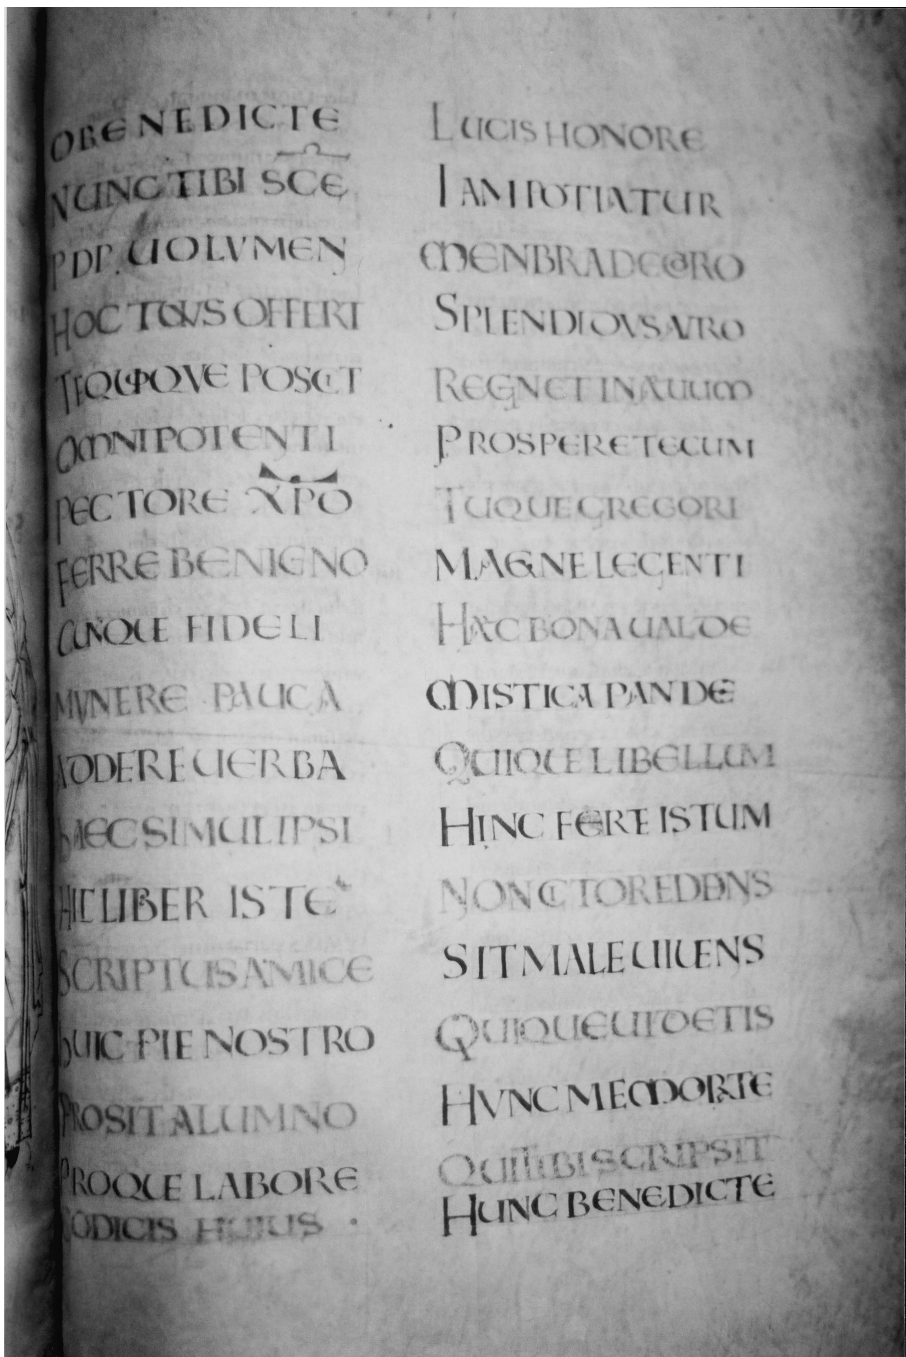 O BENEDICTE
NUNC TIBI SCE
VOLUMEN
HOC TUUS OFFERT
POSCIT
OMNIPOTENTI
PECTORE XPO
FERRE BENIGNO
FIDELI
MUNERE PAUCA
EDERE UERBA
HAEC SIMUL IPSI
HIC LIBER ISTE
SCRIPTUS AMICE
HUIC PIE NOSTRO
PROSIT ALUMNO
PROQUE LABORE
CODICIS HUIUS
LUCIS HONORE
IAM POTIATUR
MENBRA DECORO
SPLENDIDUS AURO
REGNET IN AUUM
PROSPERE TECUM
TUQUE GREGORI
MAGNE LEGENTI
HAC BONA UALDE
MISTICA PANDE
QUIQUE LIBELLUM
HINC FERT ISTUM
NON
SIT MALE UIUENS
QUIQUE UIDETIS
HUNC MEMORATE
QUI TIBI SCRIPSIT
HUNC BENEDICTE